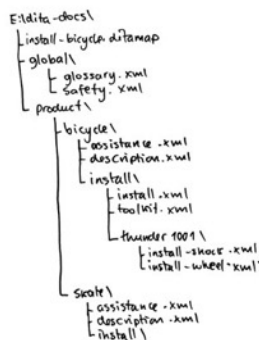 E:\dita-docs\
install-bicycle.ditamap
global\
glossary.xml
safety.xml
product\
bicycle\
assistance.xml
description.xml
install\
install.xml
toolkit.xml
thunder1001\
install-shock.xml
install-wheel.xml
skate\
assistance.xml
description.xml
install\